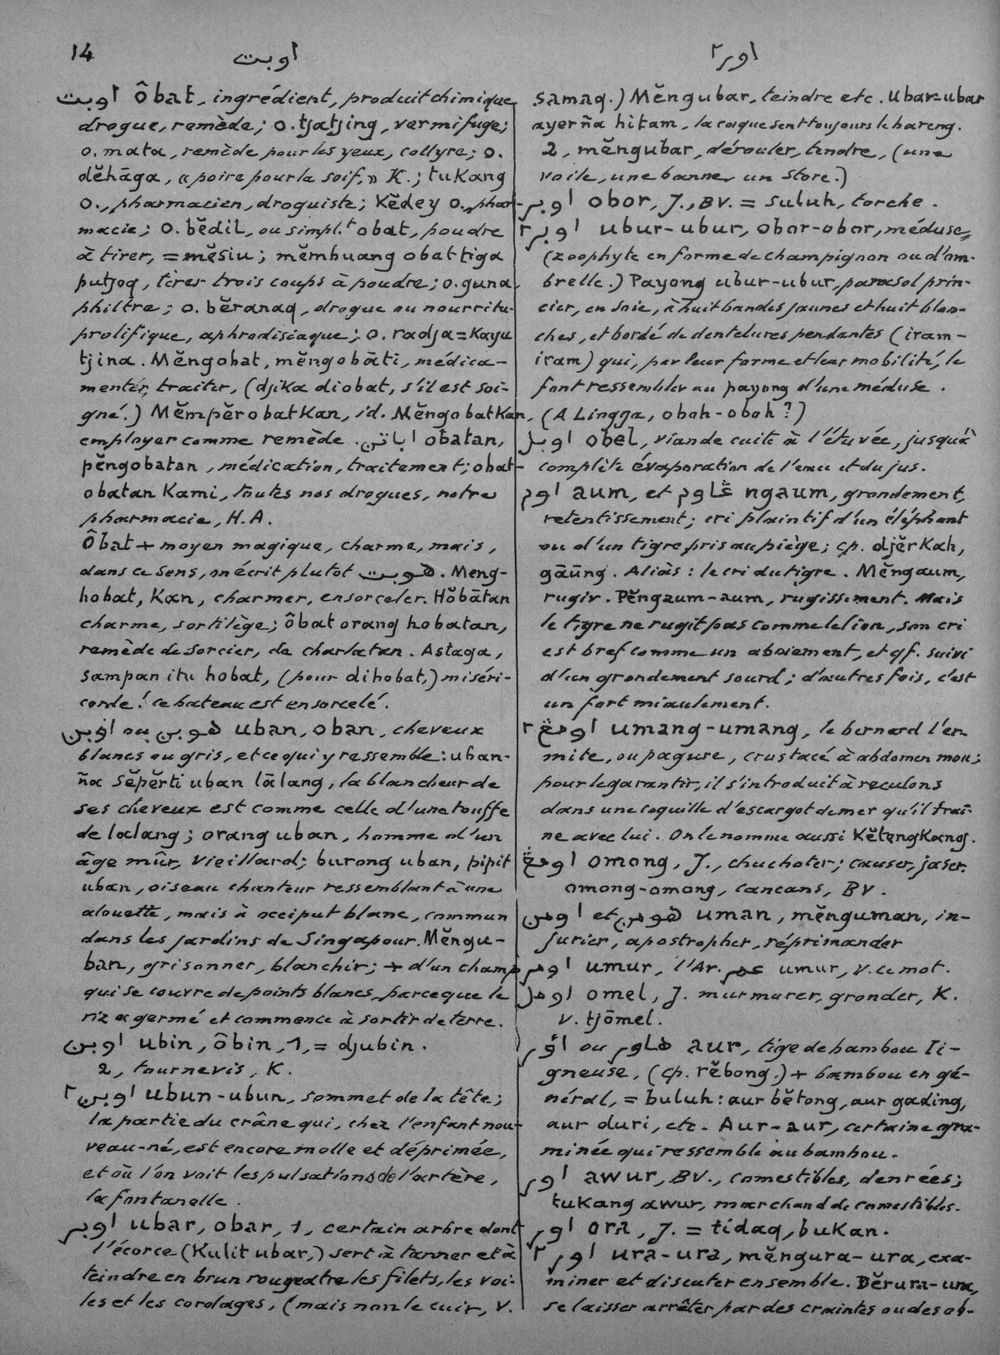 14
اوبت
اور٢
اوبت ôbat, ingrédient, produit chimique,
drogue, remède; o. tjatjing, vermifuge;
o. mata, remède pour les yeux, collyre; o.
dĕhāga, « poire pour la soif, » K.; tukang
o., pharmacien, droguiste; Kĕdey o., phar-
macie; o. bĕdil, ou simpl.t obat, poudre
à tirer, = mĕsiu; mĕmbuang obat tiga
putjoq, tirer trois coups à poudre; o. guna,
philtre; o. bĕranaq, drogue ou nourritu-
prolifique, aphrodisiaque; o. radja = Kayu
tjina. Mĕngobat, mĕngobāti, médica-
menter, traiter, (djika diobat, s'il est soi-
gné.) Mĕmpĕrobatkan, id. Mĕngobatkan,
employer comme remède. اباتن obātan,
pĕngobatan, médication, traitement; obat-
obatan Kami, toutes nos drogues, notre
pharmacie, H.A.
Ôbat + moyen magique, charme, mais,
dans ce sens, on écrit plutôt هوبت. Meng-
hobat, Kan, charmer, ensorceler. Hŏbātan
charme, sortilège; ôbat orang hobatan,
remède de sorcier, de charlatan. Astaga,
sampan itu hobat, (pour dihobat,) miséri-
corde! ce bateau est ensorcelé.
اوبن ou هوبن uban, oban, cheveux
blancs ou gris, et ce qui y ressemble: uban-
ña sĕpĕrti uban lālang, la blancheur de
ses cheveux est comme celle d'une touffe
de lalang; orang uban, homme d'un
âge mûr, vieillard; burong uban, pipit
uban, oiseau chanteur ressemblant à une
alouette, mais à occiput blanc, commun
dans les jardins de Singapour. Mĕngu-
ban, grisonner, blanchir; + d'un champ
qui se couvre de points blancs, parce que le
riz a germé et commence à sortir de terre.
اوبن ubin, ôbin, 1, = djubin.
2, tournevis, K.
اوبن٢ ubun-ubun, sommet de la tête;
la partie du crâne qui, chez l'enfant nou-
veau-né, est encore molle et déprimée,
et où l'on voit les pulsations de l'artère,
la fontanelle.
اوبر ubar, obar, 1, certain arbre dont
l'écorce (Kulit ubar,) sert à tanner et à
teindre en brun rougeâtre les filets, les voi-
les et les cordages, (mais non le cuir, v.
samaq.) Mĕngubar, teindre etc. Ubar-ubar
ayerña hitam, la caque sent toujours le hareng.
2, mĕngubar, dérouler, tendre, (une
voile, une banner un store.)
اوبر obor, J., BV. = suluh, torche.
اوبر٢ ubur-ubur, obor-obor, méduse,
(zoophyte en forme de champignon ou d'om-
brelle.) Payong ubur-ubur, parasol prin-
cier, en soie, à huit bandes jaunes et huit blan-
ches, et bordé de dentelures pendantes (iram-
iram) qui, par leur forme et leur mobilité, le
font ressembler au payong d'une méduse.
(A Lingga, obah-obah?)
اوبل obel, viande cuite à l'étuvée, jusqu'à
complète évaporation de l'eau et du jus.
اوم aum, et ڠاوم ngaum, grondement,
retentissement; cri plaintif d'un éléphant
ou d'un tigre pris au piège; cp. djĕrkah,
gāūng. Aliàs: le cri du tigre. Mĕngaum,
rugir. Pĕngaum-aum, rugissement. Mais
le tigre ne rugit pas comme le lion, son cri
est bref comme un aboiement, et qf. suivi
d'un grondement sourd; d'autres fois, c'est
un fort miaulement.
اومڠ٢ umang-umang, le bernard l'er-
mite, ou pagure, crustacé à abdomen mou;
pour le garantir, il s'introduit à reculons
dans une coquille d'escargot de mer qu'il traî-
ne avec lui. On le nomme aussi Kĕtengkang.
اومڠ omong, J., chuchoter; causer, jaser.
omong-omong, cancans, BV.
اومن et هومن uman, mĕnguman, in-
jurier, apostropher, réprimander
اومر umur, l'Ar. عمر umur, v. ce mot.
اومل omel, J. murmurer, gronder, K.
v. tjōmel.
اوٴر ou هاور aur, tige de bambou li-
gneuse, (cp. rĕbong.) + bambou en gé-
néral, = buluh: aur bĕtong, aur gading,
aur duri, etc. Aur-aur, certaine gra-
minée qui ressemble au bambou.
اور awur, BV., comestibles, denrées;
tukang awur, marchand de comestibles.
اور ora, J. = tidaq, bukan.
اور٢ ura-ura, mĕngura-ura, exa-
miner et discuter ensemble. Bĕrura-ura,
se laisser arrêter par des craintes ou des ob-